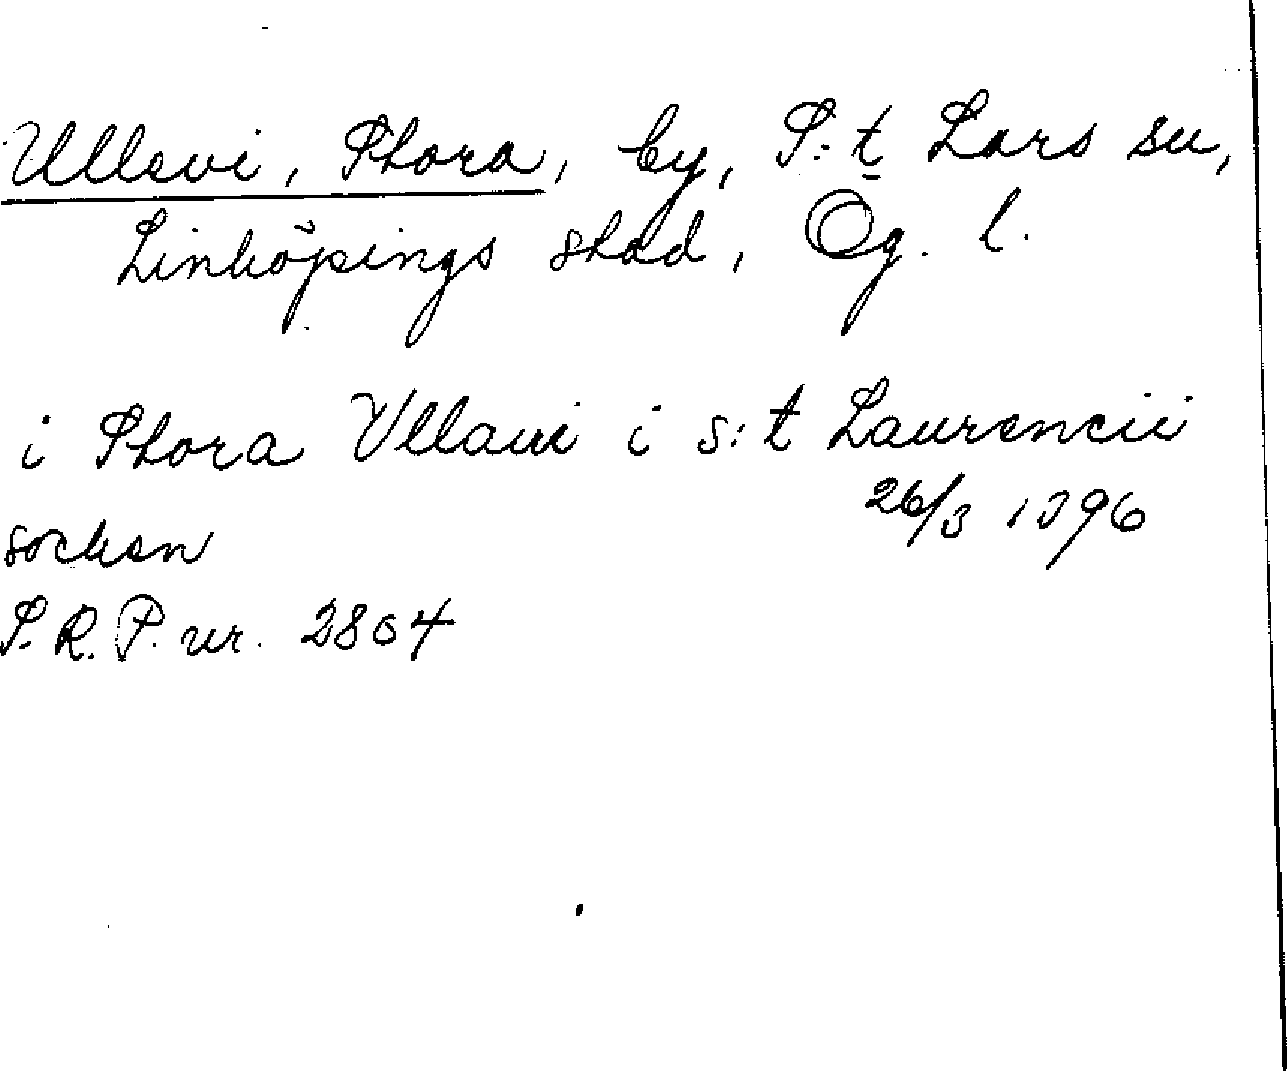 Ullevi, Stora, by, S:t Lars sn,
Linköpings stad, Ög. l.
i Stora Vllaui i s:t Laurencii
socken 26/3 1396
S.R.P. nr. 2804